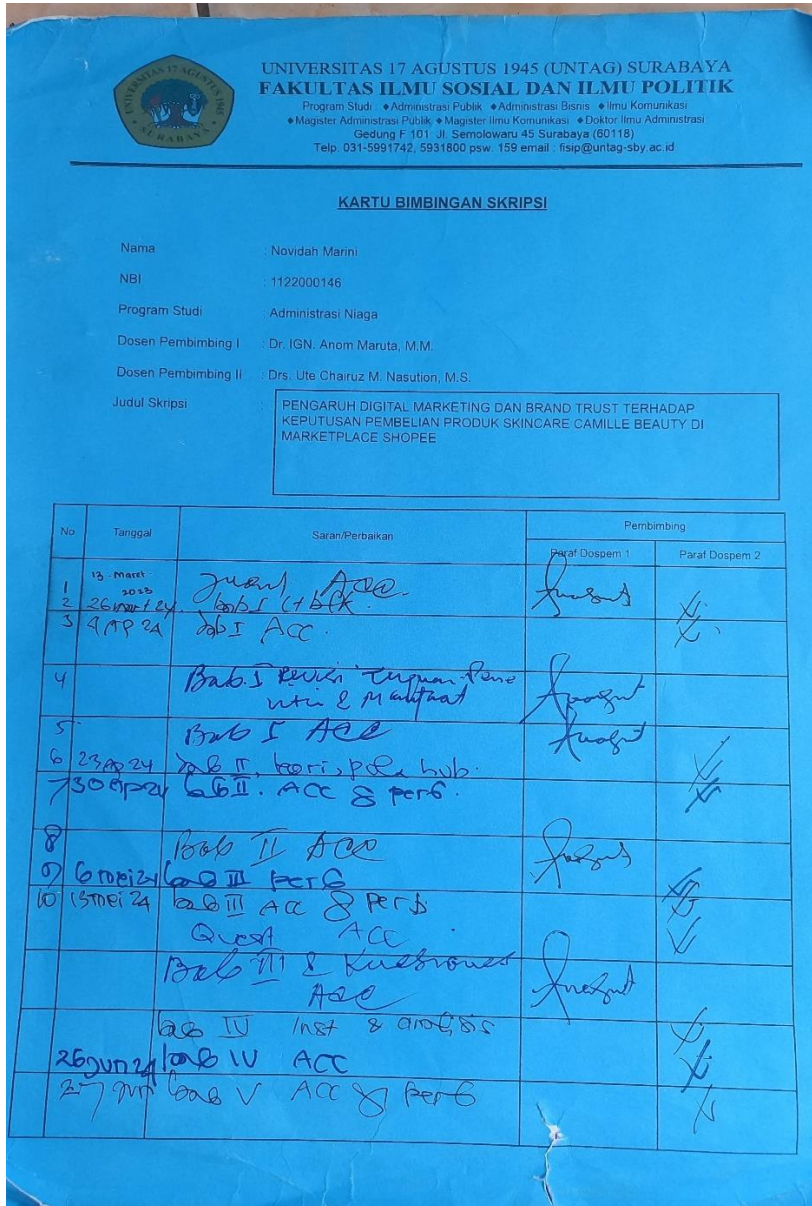 UNIVERSITAS 17 AGUSTUS 1945
SURABAYA
UNIVERSITAS 17 AGUSTUS 1945 (UNTAG) SURABAYA
FAKULTAS ILMU SOSIAL DAN ILMU POLITIK
Program Studi : ♦Administrasi Publik ♦Administrasi Bisnis ♦Ilmu Komunikasi
♦Magister Administrasi Publik ♦Magister Ilmu Komunikasi ♦Doktor Ilmu Administrasi
Gedung F 101 Jl. Semolowaru 45 Surabaya (60118)
Telp. 031-5991742, 5931800 psw. 159 email : fisip@untag-sby.ac.id
KARTU BIMBINGAN SKRIPSI
Nama : Novidah Marini
NBI : 1122000146
Program Studi Administrasi Niaga
Dosen Pembimbing I : Dr. IGN. Anom Maruta, M.M.
Dosen Pembimbing II : Drs. Ute Chairuz M. Nasution, M.S.
Judul Skripsi : PENGARUH DIGITAL MARKETING DAN BRAND TRUST TERHADAP
KEPUTUSAN PEMBELIAN PRODUK SKINCARE CAMILLE BEAUTY DI
MARKETPLACE SHOPEE
No Tanggal Saran/Perbaikan Pembimbing
Paraf Dospem 1 Paraf Dospem 2
1 13 Maret ACC
2 24 bab I
3 4 AP 24 bab I ACC.
4 Bab I Revisi
& Manfaat
5 Bab I ACC
6 23 Ap 24 bab II, teori, pola hub.
7 30 Ap 24 bab II. ACC & perb.
8 Bab II ACC
9 6 mei 24 bab III perb
10 13 mei 24 bab III ACC & perb
Quest ACC
Bab III & Kuesioner
ACC
bab IV Inst & analisis
26 Jun 24 bab IV ACC
27 Jun bab V ACC & perb